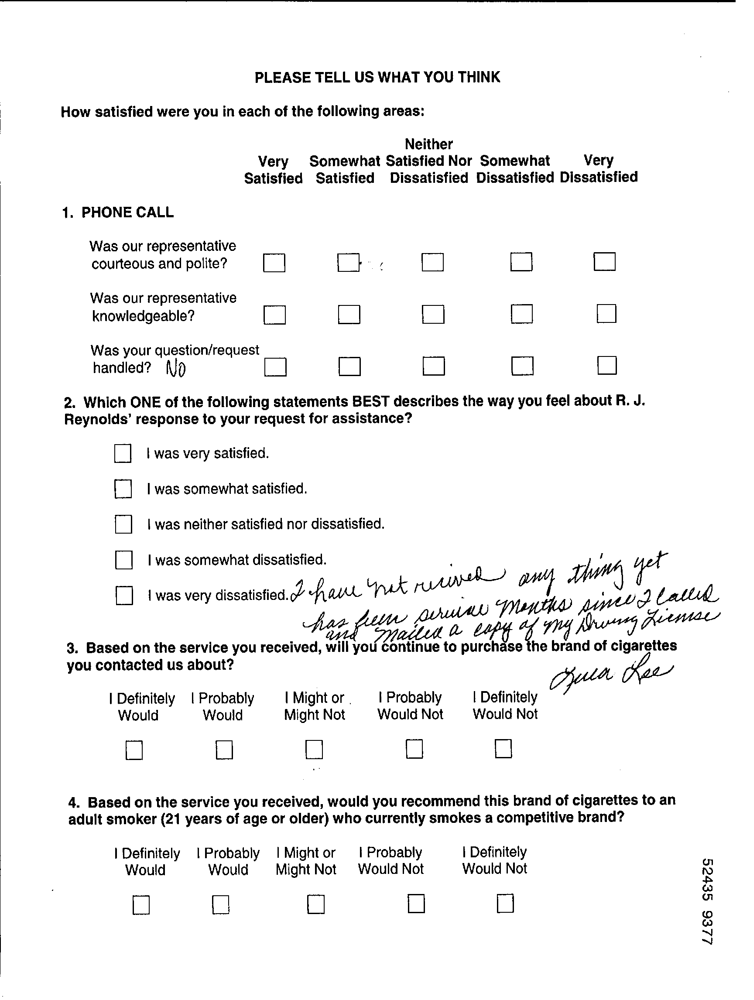 PLEASE TELL US WHAT YOU THINK
How satisfied were you in each of the following areas:
Neither
Very Somewhat Satisfied Nor Somewhat Very
Satisfied Satisfied Dissatisfied Dissatisfied Dissatisfied
1. PHONE CALL
Was our representative
courteous and polite?
Was our representative
knowledgeable?
Was your question/request
handled? No
2. Which ONE of the following statements BEST describes the way you feel about R. J.
Reynolds' response to your request for assistance?
I was very satisfied.
I was somewhat satisfied.
I was neither satisfied nor dissatisfied.
I was somewhat dissatisfied.
I was very dissatisfied. I have not recived any thing yet
has been months since I called
and mailed a copy of my Driving License
3. Based on the service you received, will you continue to purchase the brand of cigarettes
you contacted us about?
Lee
I Definitely I Probably I Might or I Probably I Definitely
Would Would Might Not Would Not Would Not
4. Based on the service you received, would you recommend this brand of cigarettes to an
adult smoker (21 years of age or older) who currently smokes a competitive brand?
I Definitely I Probably I Might or I Probably I Definitely
Would Would Might Not Would Not Would Not
52435 9377